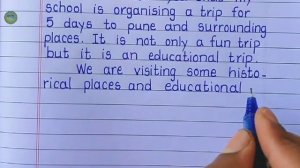 school is organising a trip for
5 days to pune and surrounding
places. It is not only a fun trip
but it is an educational trip.
We are visiting some histo-
rical places and educational